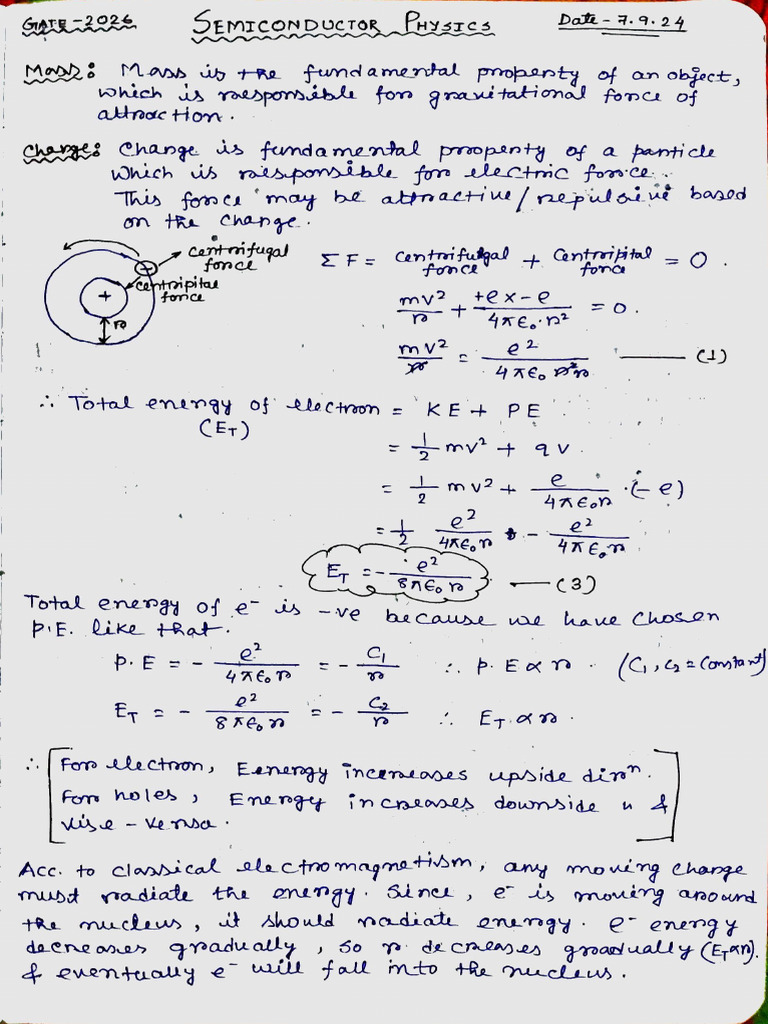 GATE-2026 SEMICONDUCTOR PHYSICS Date - 7.9.24
Mass: Mass is the fundamental property of an object,
which is responsible for gravitational force of
attraction.
Charge: Charge is fundamental property of a particle
which is responsible for electric force.
This force may be attractive/repulsive based
on the charge.
centrifugal
force
centripital
force
+
−
r
ΣF = centrifugal force + centripital force = 0.
mv²/r + +e×-e/4πε₀.r² = 0.
mv²/r = e²/4πε₀ r²r —— (1)
∴ Total energy of electron = KE + PE
(E_T)
= 1/2 mv² + qv
= 1/2 mv² + e/4πε₀r .(-e)
= 1/2 e²/4πε₀r - e²/4πε₀r
E_T = - e²/8πε₀r —— (3)
Total energy of e⁻ is -ve because we have chosen
P.E. like that.
P.E = - e²/4πε₀r = - C₁/r ∴ P.E ∝ r. (C₁, C₂ = constant)
E_T = - e²/8πε₀r = - C₂/r ∴ E_T ∝ r.
∴ [For electron, Eenergy increases upside dirⁿ.
For holes, Energy increases downside " &
vise-versa.]
Acc. to classical electromagnetism, any moving charge
must radiate the energy. Since, e⁻ is moving around
the nucleus, it should radiate energy. e⁻ energy
decreases gradually, so r decreases gradually (E_T∝r).
& eventually e⁻ will fall into the nucleus.